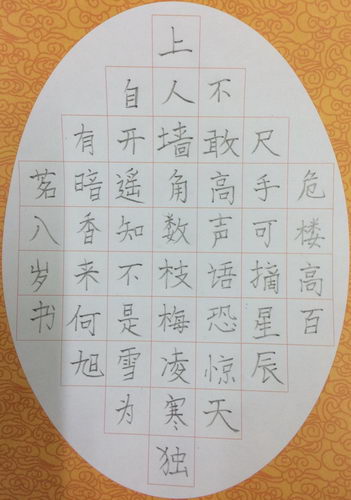 危楼高百
尺手可摘星辰
不敢高声语恐惊天
上人墙角数枝梅凌寒独
自开遥知不是雪为
有暗香来何旭
茗八岁书